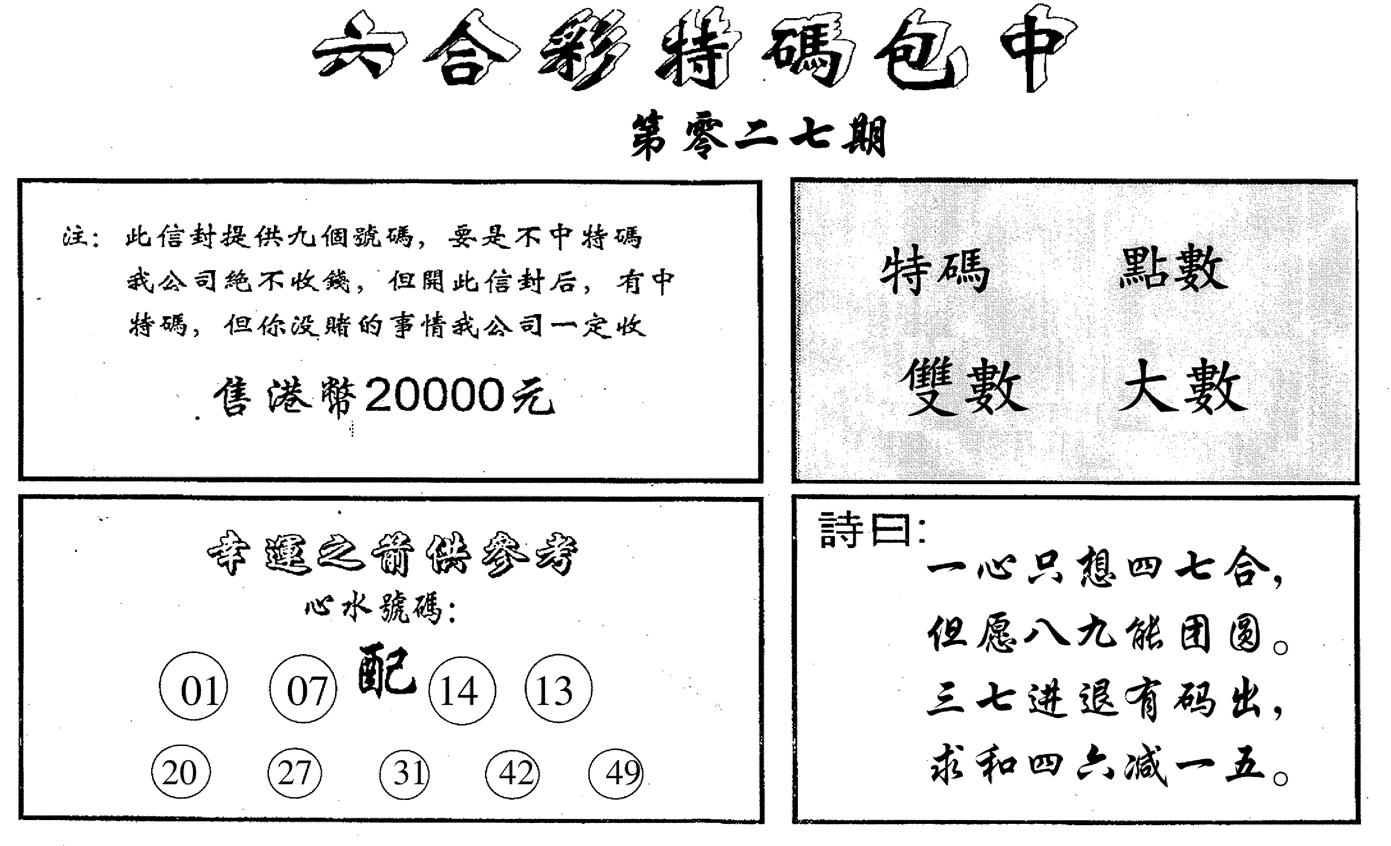 六合彩特碼包中
第零二七期
注：此信封提供九個號碼，要是不中特碼
我公司絕不收錢，但開此信封后，有中
特碼，但你没賭的事情我公司一定收
售港幣20000元
特碼 點數
雙數 大數
幸運之箭供參考
心水號碼：
01 07 配 14 13
20 27 31 42 49
詩曰：
一心只想四七合，
但愿八九能团圆。
三七进退有码出，
求和四六减一五。